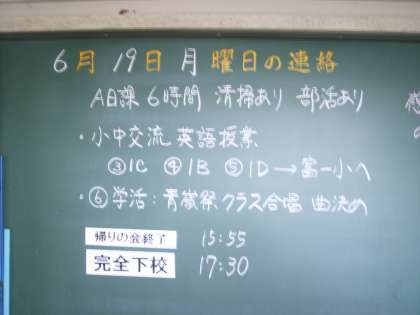 6月19日月曜日の連絡
A日課 6時間 清掃あり 部活あり
・小中交流 英語授業
③1C ④1B ⑤1D→富一小へ
・⑥学活：青嵐祭クラス合唱 曲決め
帰りの会終了 15:55
完全下校 17:30